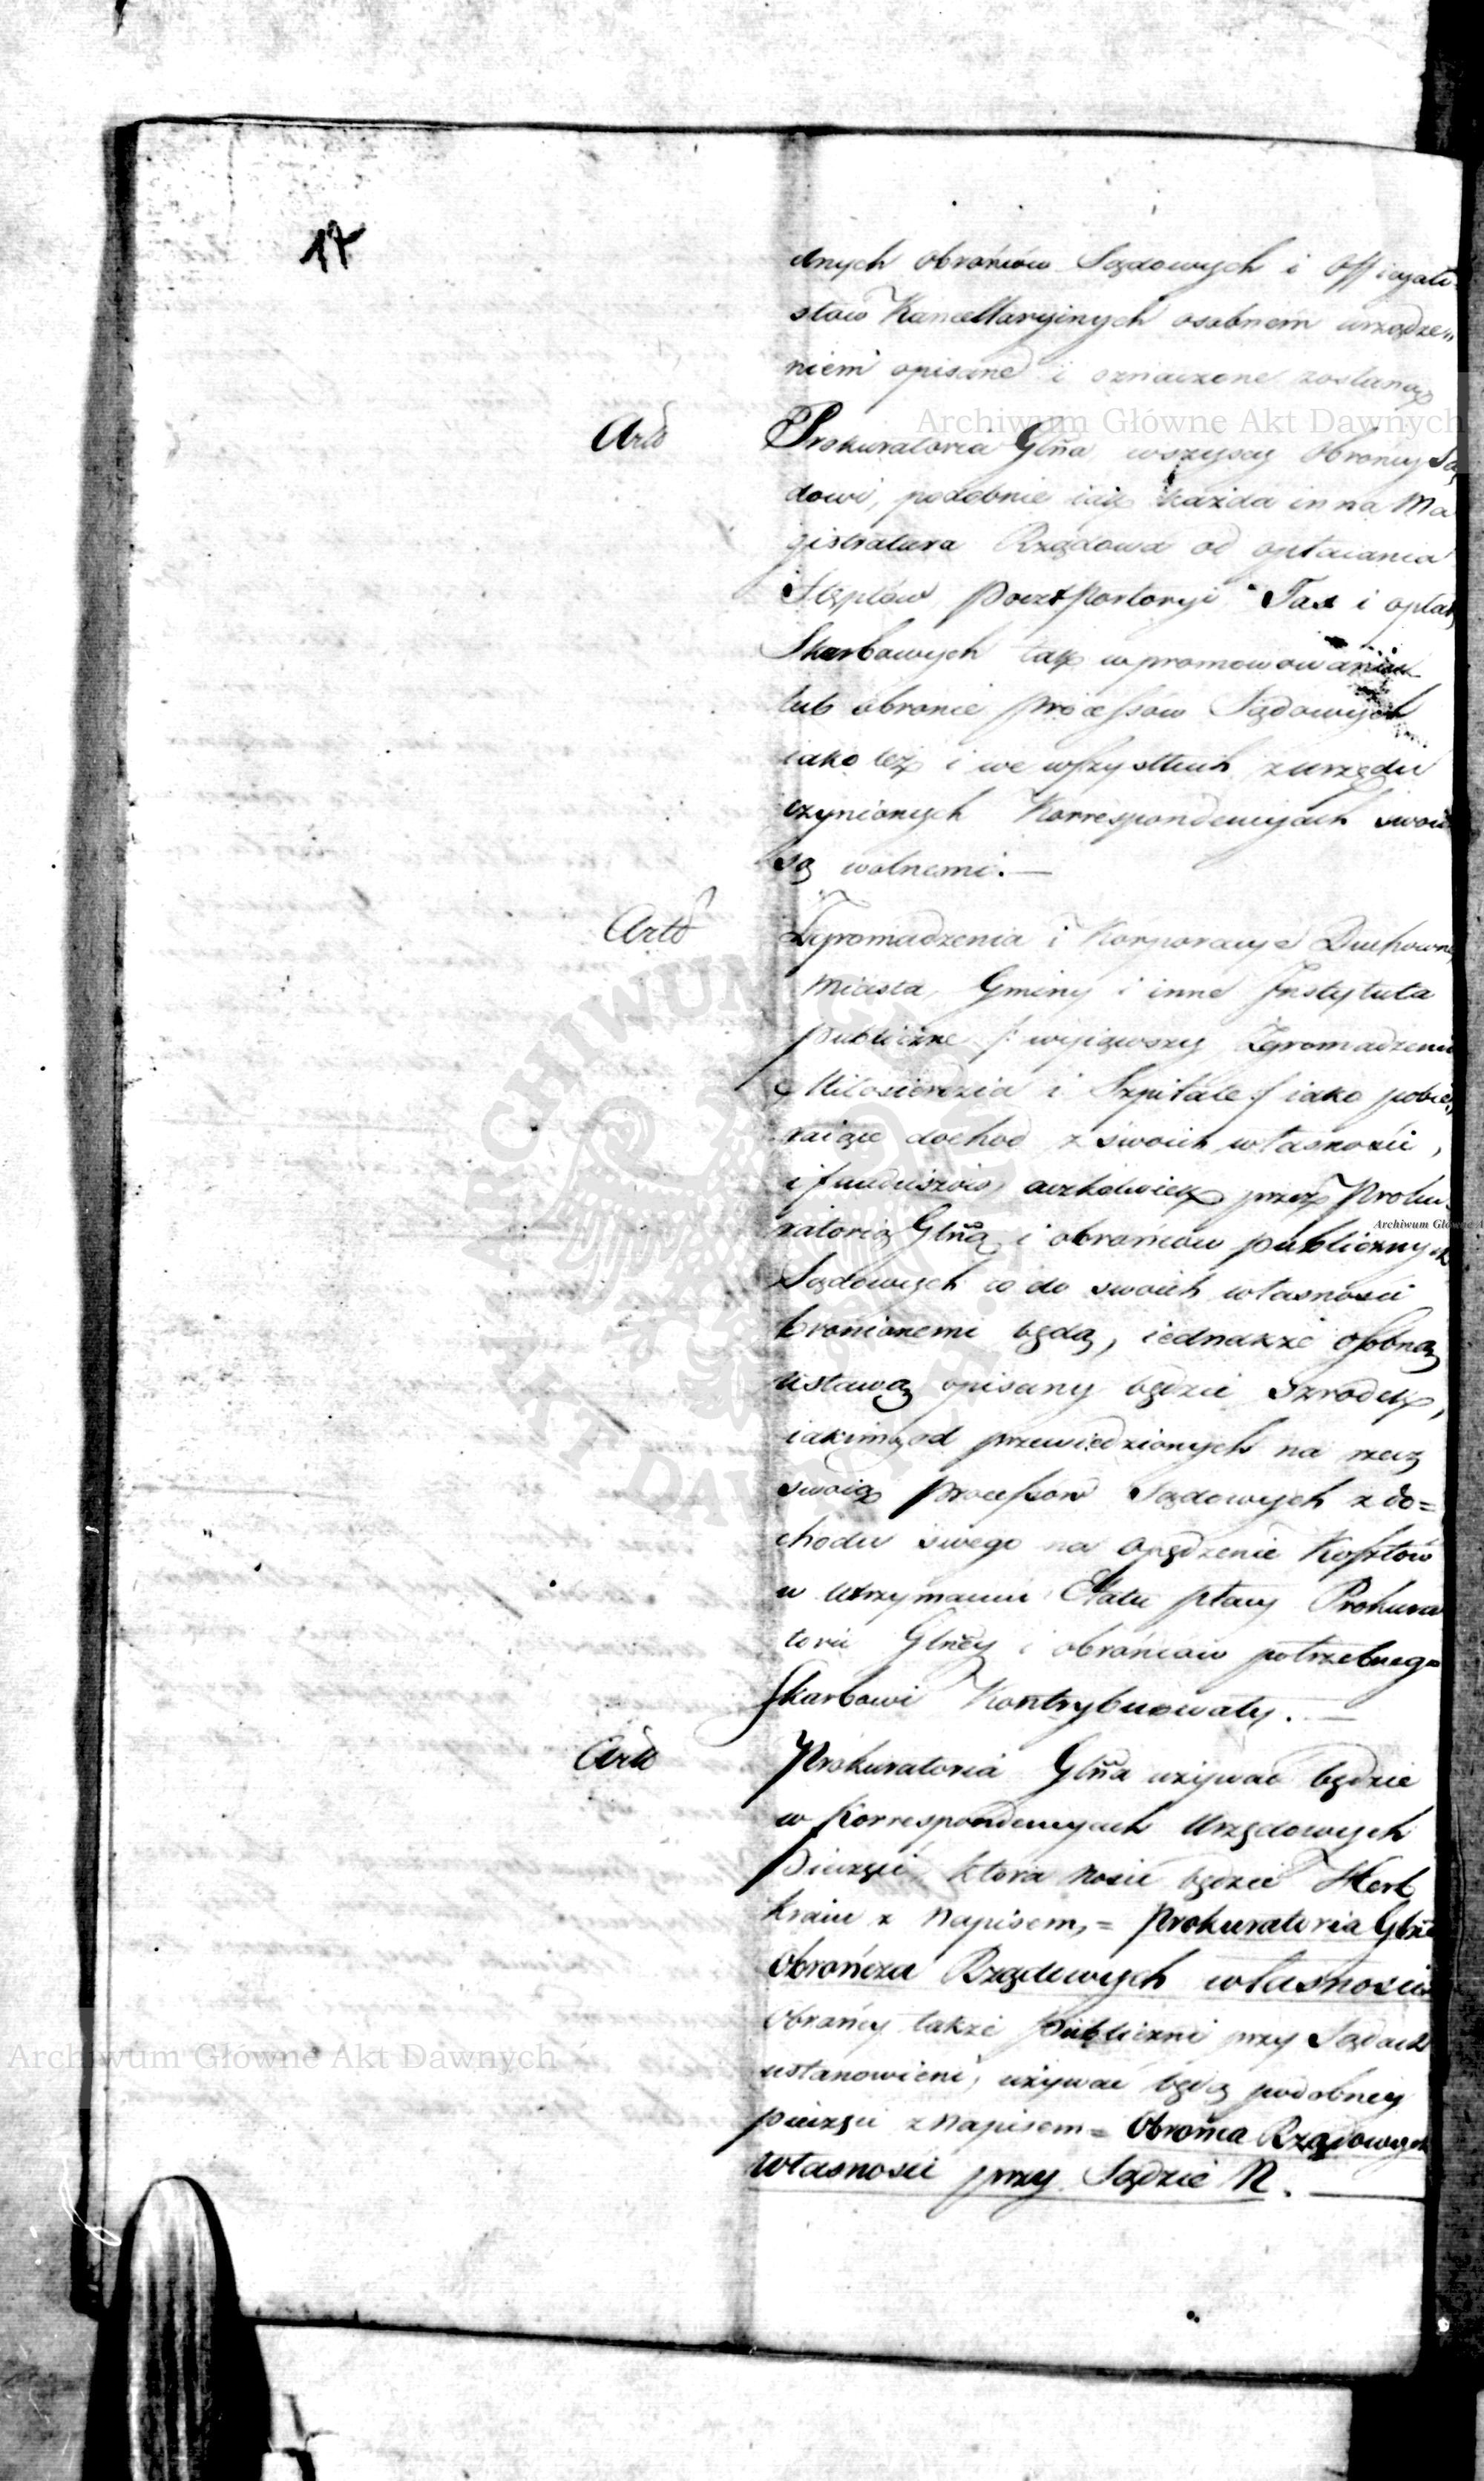 17
dnych obrońcow Sądowych i Officyali-
stow Kancellaryinych osobnem urządze„
niem opisane i oznaczone zostaną
Artł Prokuratoria Glña wszyscy Obroncy Są
dowi, podobnie iak każda inna Ma
gistratura Rządowa od opłacania
Stęplow Poczt Portoryi Tax i opłat
Skarbowych tak w promowowaniu
lub obronie processow Sądowych
iako też i we wszystkich z urzędu
czynionych Korrespondencyach swoich
są wolnemi. —
Artł Zgromadzenia i Korporacye Duchowne,
Miasta, Gminy i inne Instytuta
publiczne /: wyiąwszy Zgromadzenia
Miłosierdzia i Szpitale :/ iako pobie„
raiące dochod z swoich własności,
i funduszow, aczkolwiek przez Proku-
ratorią Glñą i obrońcow publicznych
Sądowych co do swoich własności
bronionemi będą, iednakże osobną
ustawą opisany będzie Szrodek,
iakim od przewiedzionych na rzecz
swoią processow Sądowych z do=
chodu swego na opędzenie Kosztow
w utrzymaniu Etatu płacy Prokura
torii Glñey i obrońcow potrzebnego
Skarbowi Kontrybuowały. —
Artł Prokuratoria Glña używać będzie
w Korrespondencyach Urzędowych
Pieczęci ktora nosić będzie Herb
kraiu z napisem, = Prokuratoria Glña
Obrończa Rządowych własności
Obrońcy także Publiczni przy Sądach
ustanowieni, używać będą podobney
pieczęci z napisem = Obrońca Rządowych
własności przy Sądzie N. —
Archiwum Główne Akt Dawnych
Archiwum Główne Akt Dawnych
ARCHIWUM GŁÓWNE AKT DAWNYCH